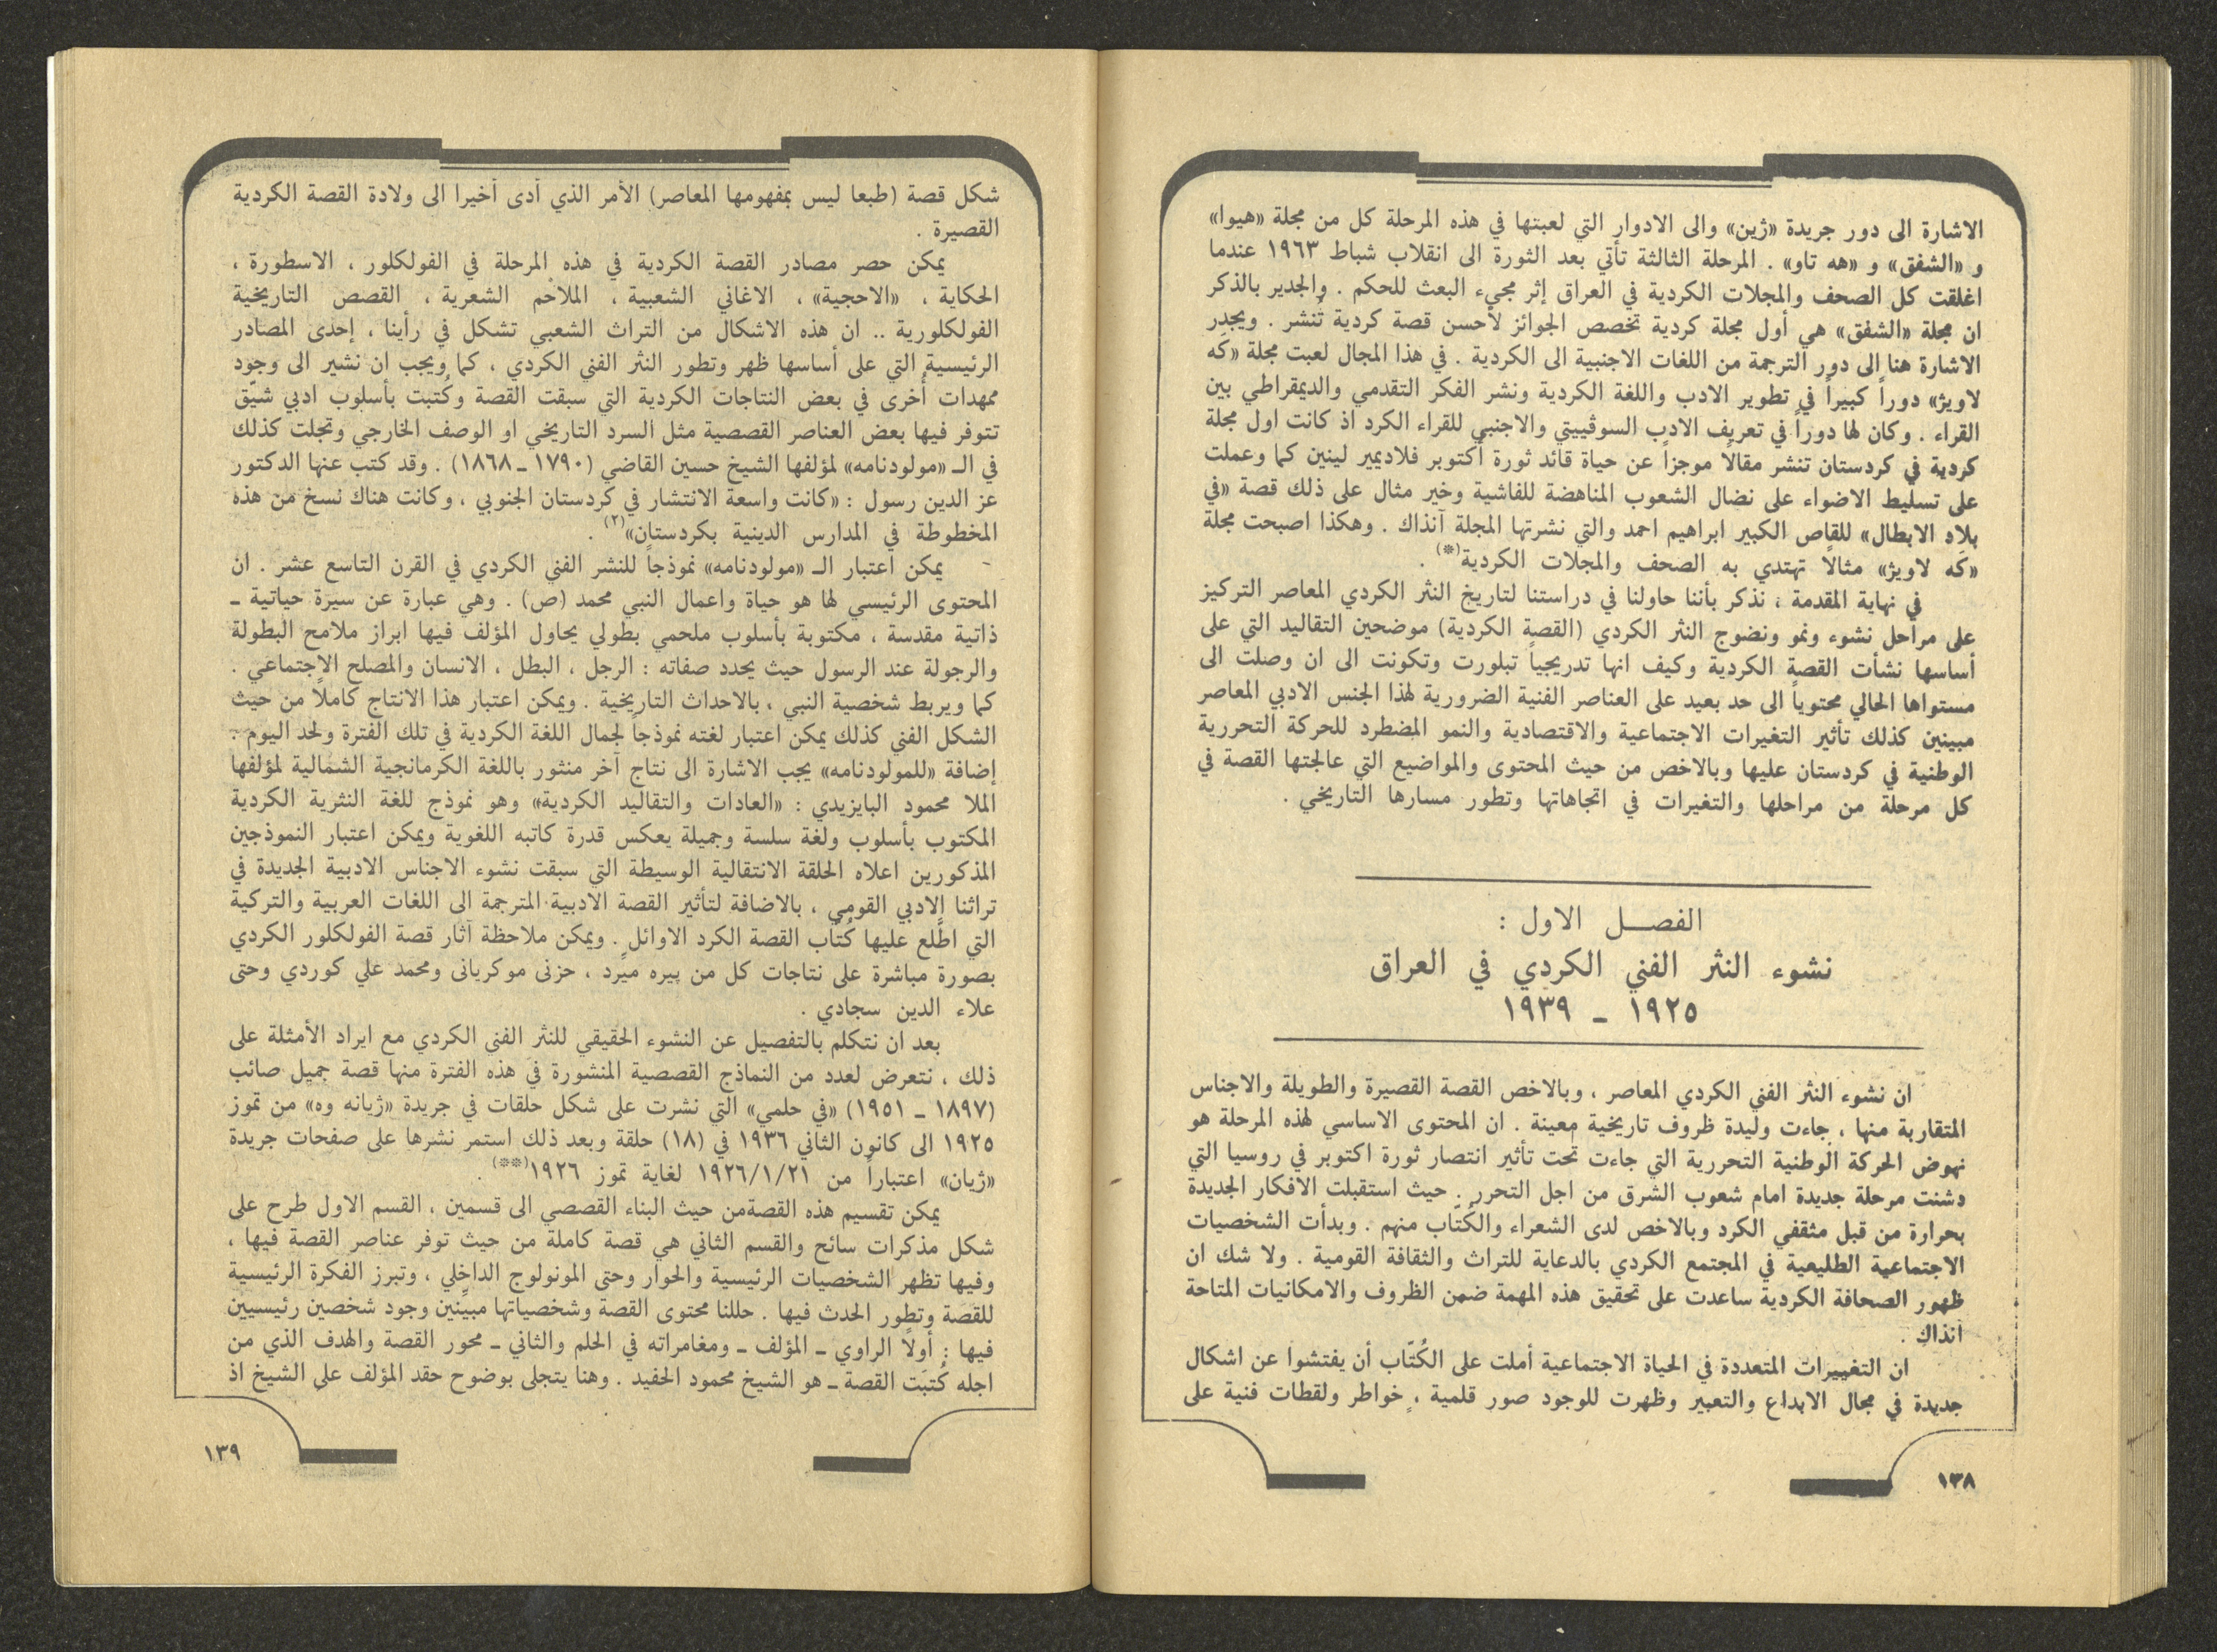 الاشارة الى دور جريدة «ژين» والى الادوار التي لعبتها في هذه المرحلة كل من مجلة «هيوا»
و «الشفق» و «هه تاو» . المرحلة الثالثة تأتي بعد الثورة الى انقلاب شباط ١٩٦٣ عندما
اغلقت كل الصحف والمجلات الكردية في العراق إثر مجيء البعث للحكم . والجدير بالذكر
ان مجلة «الشفق» هي أول مجلة كردية تخصص الجوائز لأحسن قصة كردية تُنشر . ويجدر
الاشارة هنا الى دور الترجمة من اللغات الاجنبية الى الكردية . في هذا المجال لعبت مجلة «كَه
لاويژ» دوراً كبيراً في تطوير الادب واللغة الكردية ونشر الفكر التقدمي والديمقراطي بين
القراء . وكان لها دوراً في تعريف الادب السوڤييتي والاجنبي للقراء الكرد اذ كانت اول مجلة
كردية في كردستان تنشر مقالاً موجزاً عن حياة قائد ثورة أكتوبر فلاديمير لينين كما وعملت
على تسليط الاضواء على نضال الشعوب المناهضة للفاشية وخير مثال على ذلك قصة «في
بلاد الابطال» للقاص الكبير ابراهيم احمد والتي نشرتها المجلة آنذاك . وهكذا اصبحت مجلة
«كَه لاويژ» مثالاً تهتدي به الصحف والمجلات الكردية(*) .
في نهاية المقدمة ، نذكر بأننا حاولنا في دراستنا لتاريخ النثر الكردي المعاصر التركيز
على مراحل نشوء ونمو ونضوج النثر الكردي (القصة الكردية) موضحين التقاليد التي على
أساسها نشأت القصة الكردية وكيف انها تدريجياً تبلورت وتكونت الى ان وصلت الى
مستواها الحالي محتوياً الى حد بعيد على العناصر الفنية الضرورية لهذا الجنس الادبي المعاصر
مبينين كذلك تأثير التغيرات الاجتماعية والاقتصادية والنمو المضطرد للحركة التحررية
الوطنية في كردستان عليها وبالاخص من حيث المحتوى والمواضيع التي عالجتها القصة في
كل مرحلة من مراحلها والتغيرات في اتجاهاتها وتطور مسارها التاريخي .
الفصــل الاول :
نشوء النثر الفني الكردي في العراق
١٩٢٥ ـ ١٩٣٩
ان نشوء النثر الفني الكردي المعاصر ، وبالاخص القصة القصيرة والطويلة والاجناس
المتقاربة منها ، جاءت وليدة ظروف تاريخية معينة . ان المحتوى الاساسي لهذه المرحلة هو
نهوض الحركة الوطنية التحررية التي جاءت تحت تأثير انتصار ثورة اكتوبر في روسيا التي
دشنت مرحلة جديدة امام شعوب الشرق من اجل التحرر . حيث استقبلت الافكار الجديدة
بحرارة من قبل مثقفي الكرد وبالاخص لدى الشعراء والكُتّاب منهم . وبدأت الشخصيات
الاجتماعية الطليعية في المجتمع الكردي بالدعاية للتراث والثقافة القومية . ولا شك ان
ظهور الصحافة الكردية ساعدت على تحقيق هذه المهمة ضمن الظروف والامكانيات المتاحة
آنذاك .
ان التغييرات المتعددة في الحياة الاجتماعية أملت على الكُتّاب أن يفتشوا عن اشكال
جديدة في مجال الابداع والتعبير وظهرت للوجود صور قلمية ، خواطر ولقطات فنية على
١٣٨
شكل قصة (طبعا ليس بمفهومها المعاصر) الأمر الذي أدى أخيرا الى ولادة القصة الكردية
القصيرة .
يمكن حصر مصادر القصة الكردية في هذه المرحلة في الفولكلور ، الاسطورة ،
الحكاية ، «الاحجية» ، الاغاني الشعبية ، الملاحم الشعرية ، القصص التاريخية
الفولكلورية .. ان هذه الاشكال من التراث الشعبي تشكل في رأينا ، إحدى المصادر
الرئيسية التي على أساسها ظهر وتطور النثر الفني الكردي ، كما ويجب ان نشير الى وجود
ممهدات أخرى في بعض النتاجات الكردية التي سبقت القصة وكُتبت بأسلوب ادبي شيّق
تتوفر فيها بعض العناصر القصصية مثل السرد التاريخي او الوصف الخارجي وتجلت كذلك
في الـ «مولودنامه» لمؤلفها الشيخ حسين القاضي (١٧٩٠ ـ ١٨٦٨) . وقد كتب عنها الدكتور
عز الدين رسول : «كانت واسعة الانتشار في كردستان الجنوبي ، وكانت هناك نسخ من هذه
المخطوطة في المدارس الدينية بكردستان»(٢) .
يمكن اعتبار الـ «مولودنامه» نموذجاً للنشر الفني الكردي في القرن التاسع عشر . ان
المحتوى الرئيسي لها هو حياة واعمال النبي محمد (ص) . وهي عبارة عن سيرة حياتية ـ
ذاتية مقدسة ، مكتوبة بأسلوب ملحمي بطولي يحاول المؤلف فيها ابراز ملامح البطولة
والرجولة عند الرسول حيث يحدد صفاته : الرجل ، البطل ، الانسان والمصلح الاجتماعي .
كما ويربط شخصية النبي ، بالاحداث التاريخية . ويمكن اعتبار هذا الانتاج كاملاً من حيث
الشكل الفني كذلك يمكن اعتبار لغته نموذجاً لجمال اللغة الكردية في تلك الفترة ولحد اليوم .
إضافة «للمولودنامه» يجب الاشارة الى نتاج آخر منثور باللغة الكرمانجية الشمالية لمؤلفها
الملا محمود البايزيدي : «العادات والتقاليد الكردية» وهو نموذج للغة النثرية الكردية
المكتوب بأسلوب ولغة سلسة وجميلة يعكس قدرة كاتبه اللغوية ويمكن اعتبار النموذجين
المذكورين اعلاه الحلقة الانتقالية الوسيطة التي سبقت نشوء الاجناس الادبية الجديدة في
تراثنا الادبي القومي ، بالاضافة لتأثير القصة الادبية المترجمة الى اللغات العربية والتركية
التي اطّلع عليها كُتّاب القصة الكرد الاوائل . ويمكن ملاحظة آثار قصة الفولكلور الكردي
بصورة مباشرة على نتاجات كل من پيره ميرد ، حزنى موكريانى ومحمد علي كوردي وحتى
علاء الدين سجادي .
بعد ان نتكلم بالتفصيل عن النشوء الحقيقي للنثر الفني الكردي مع ايراد الأمثلة على
ذلك ، نتعرض لعدد من النماذج القصصية المنشورة في هذه الفترة منها قصة جميل صائب
(١٨٩٧ ـ ١٩٥١) «في حلمي» التي نشرت على شكل حلقات في جريدة «ژيانه وه» من تموز
١٩٢٥ الى كانون الثاني ١٩٣٦ في (١٨) حلقة وبعد ذلك استمر نشرها على صفحات جريدة
«ژيان» اعتباراً من ١٩٢٦/١/٢١ لغاية تموز ١٩٢٦(**) .
يمكن تقسيم هذه القصةمن حيث البناء القصصي الى قسمين ، القسم الاول طرح على
شكل مذكرات سائح والقسم الثاني هي قصة كاملة من حيث توفر عناصر القصة فيها ،
وفيها تظهر الشخصيات الرئيسية والحوار وحتى المونولوج الداخلي ، وتبرز الفكرة الرئيسية
للقصة وتطور الحدث فيها . حللنا محتوى القصة وشخصياتها مبيّنين وجود شخصين رئيسيين
فيها : أولاً الراوي ـ المؤلف ـ ومغامراته في الحلم والثاني ـ محور القصة والهدف الذي من
اجله كُتبَت القصة ـ هو الشيخ محمود الحفيد . وهنا يتجلى بوضوح حقد المؤلف على الشيخ اذ
١٣٩